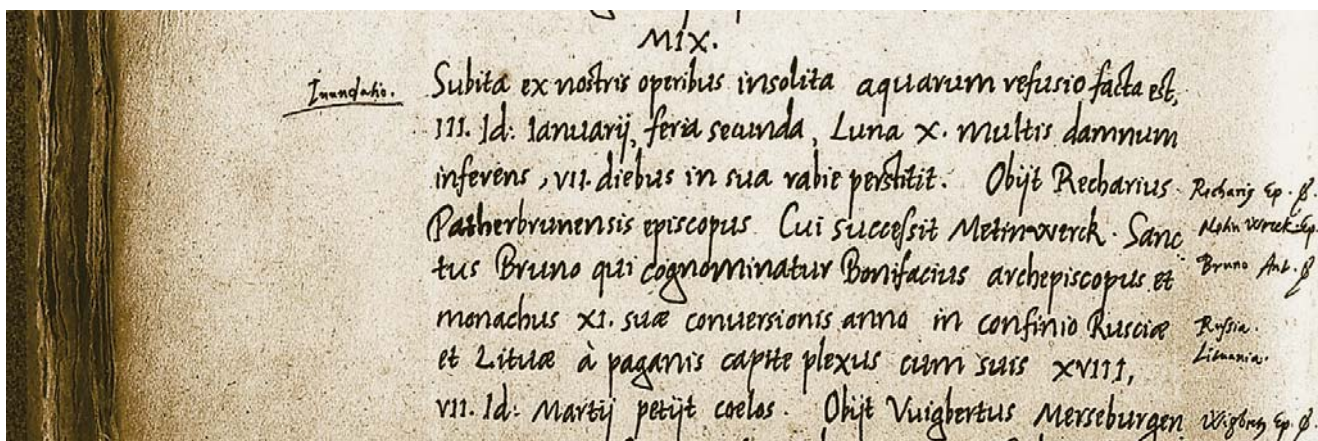 MIX.
Inundatio.
Subita ex nostris operibus insolita aquarum refusio facta est,
III. Id: Ianuarij, feria secunda, Luna X. multis damnum
inferens, VII. diebus in sua rabie perstitit. Obijt Recharius
Patherbrunensis episcopus. Cui successit Metinwerck. Sanc
tus Bruno qui cognominatur Bonifacius archepiscopus et
monachus XI. suæ conversionis anno in confinio Rusciæ
et Lituæ à paganis capite plexus cum suis XVIII,
VII. Id: Martij petijt coelos. Obijt Vuigbertus Merseburgen
Ep.
Ep.
Bruno
Russia.
Lituania.
Ep.